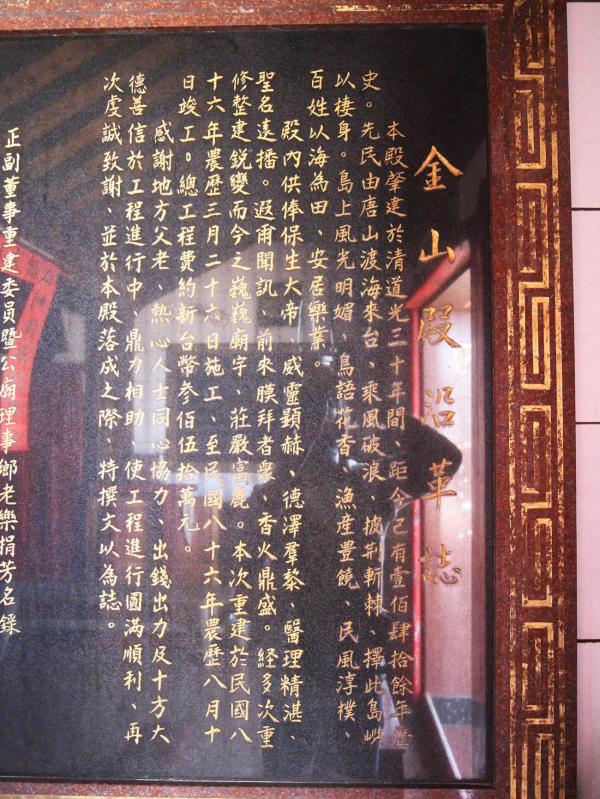 金山殿沿革誌
本殿肇建於清道光三十年間、距今已有壹佰肆拾餘年歷
史。先民由唐山渡海來台、乘風破浪、披荆斬棘、擇此島嶼
以棲身。島上風光明媚、鳥語花香、漁産豊饒、民風淳樸、
百姓以海為田、安居樂業。
殿内供俸保生大帝、威靈顯赫、德澤羣黎、醫理精湛、
聖名遠播。遐爾聞訊、前來膜拜者衆、香火鼎盛。経多次重
修整建鋭變而今之巍巍廟宇、莊嚴富麗。本次重建於民國八
十六年農歷三月二十六日施工、至民國八十六年農歷八月十
日竣工。總工程費約新台幣參佰伍拾萬元。
感謝地方父老、熱心人士同心協力、出錢出力及十方大
德善信於工程進行中、鼎力相助、使工程進行圓滿順利、再
次虔誠致謝、並於本殿落成之際、特撰文以為誌。
正副董事重建委員暨公廟理事鄉老樂捐芳名錄